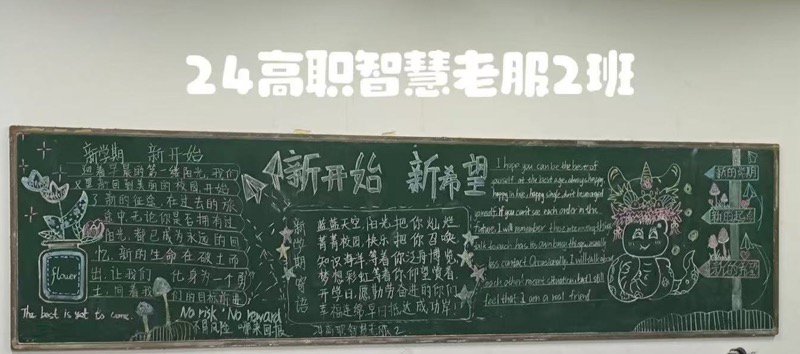 24高职智慧老服2班
新学期 新开始
迎着早晨的第一缕阳光,我们
又重新回到美丽的校园,开始
新的征途,在过去的旅
途中,无论你是否拥有过
阳光,都已成为永远的回
忆,新的生命在破土而
出,让我们化身为一个勇
士,向着我们的目标前进
flower
The best is yet to come.
No risk · No reward
不冒风险
新开始 新希望
新学期寄语
蓝蓝天空,阳光把你灿烂
菁菁校园,快乐把你召唤
知识海洋等着你泛舟博览
梦想彩虹等着你仰望赏看
开学日,愿勤劳奋进的你们
幸福连绵早日抵达成功岸!
I hope you can be the best of
yourself at the best age, always happy
happy in love, happy single, don't be wronged
yourself. If you can't see each other in the
future, I will remember the
each has its own busy things, usually
less contact. Occasionally, I will talk about
each other's recent situation, but I still
feel that I am a real friend
新的学期
新的起点
新的希望